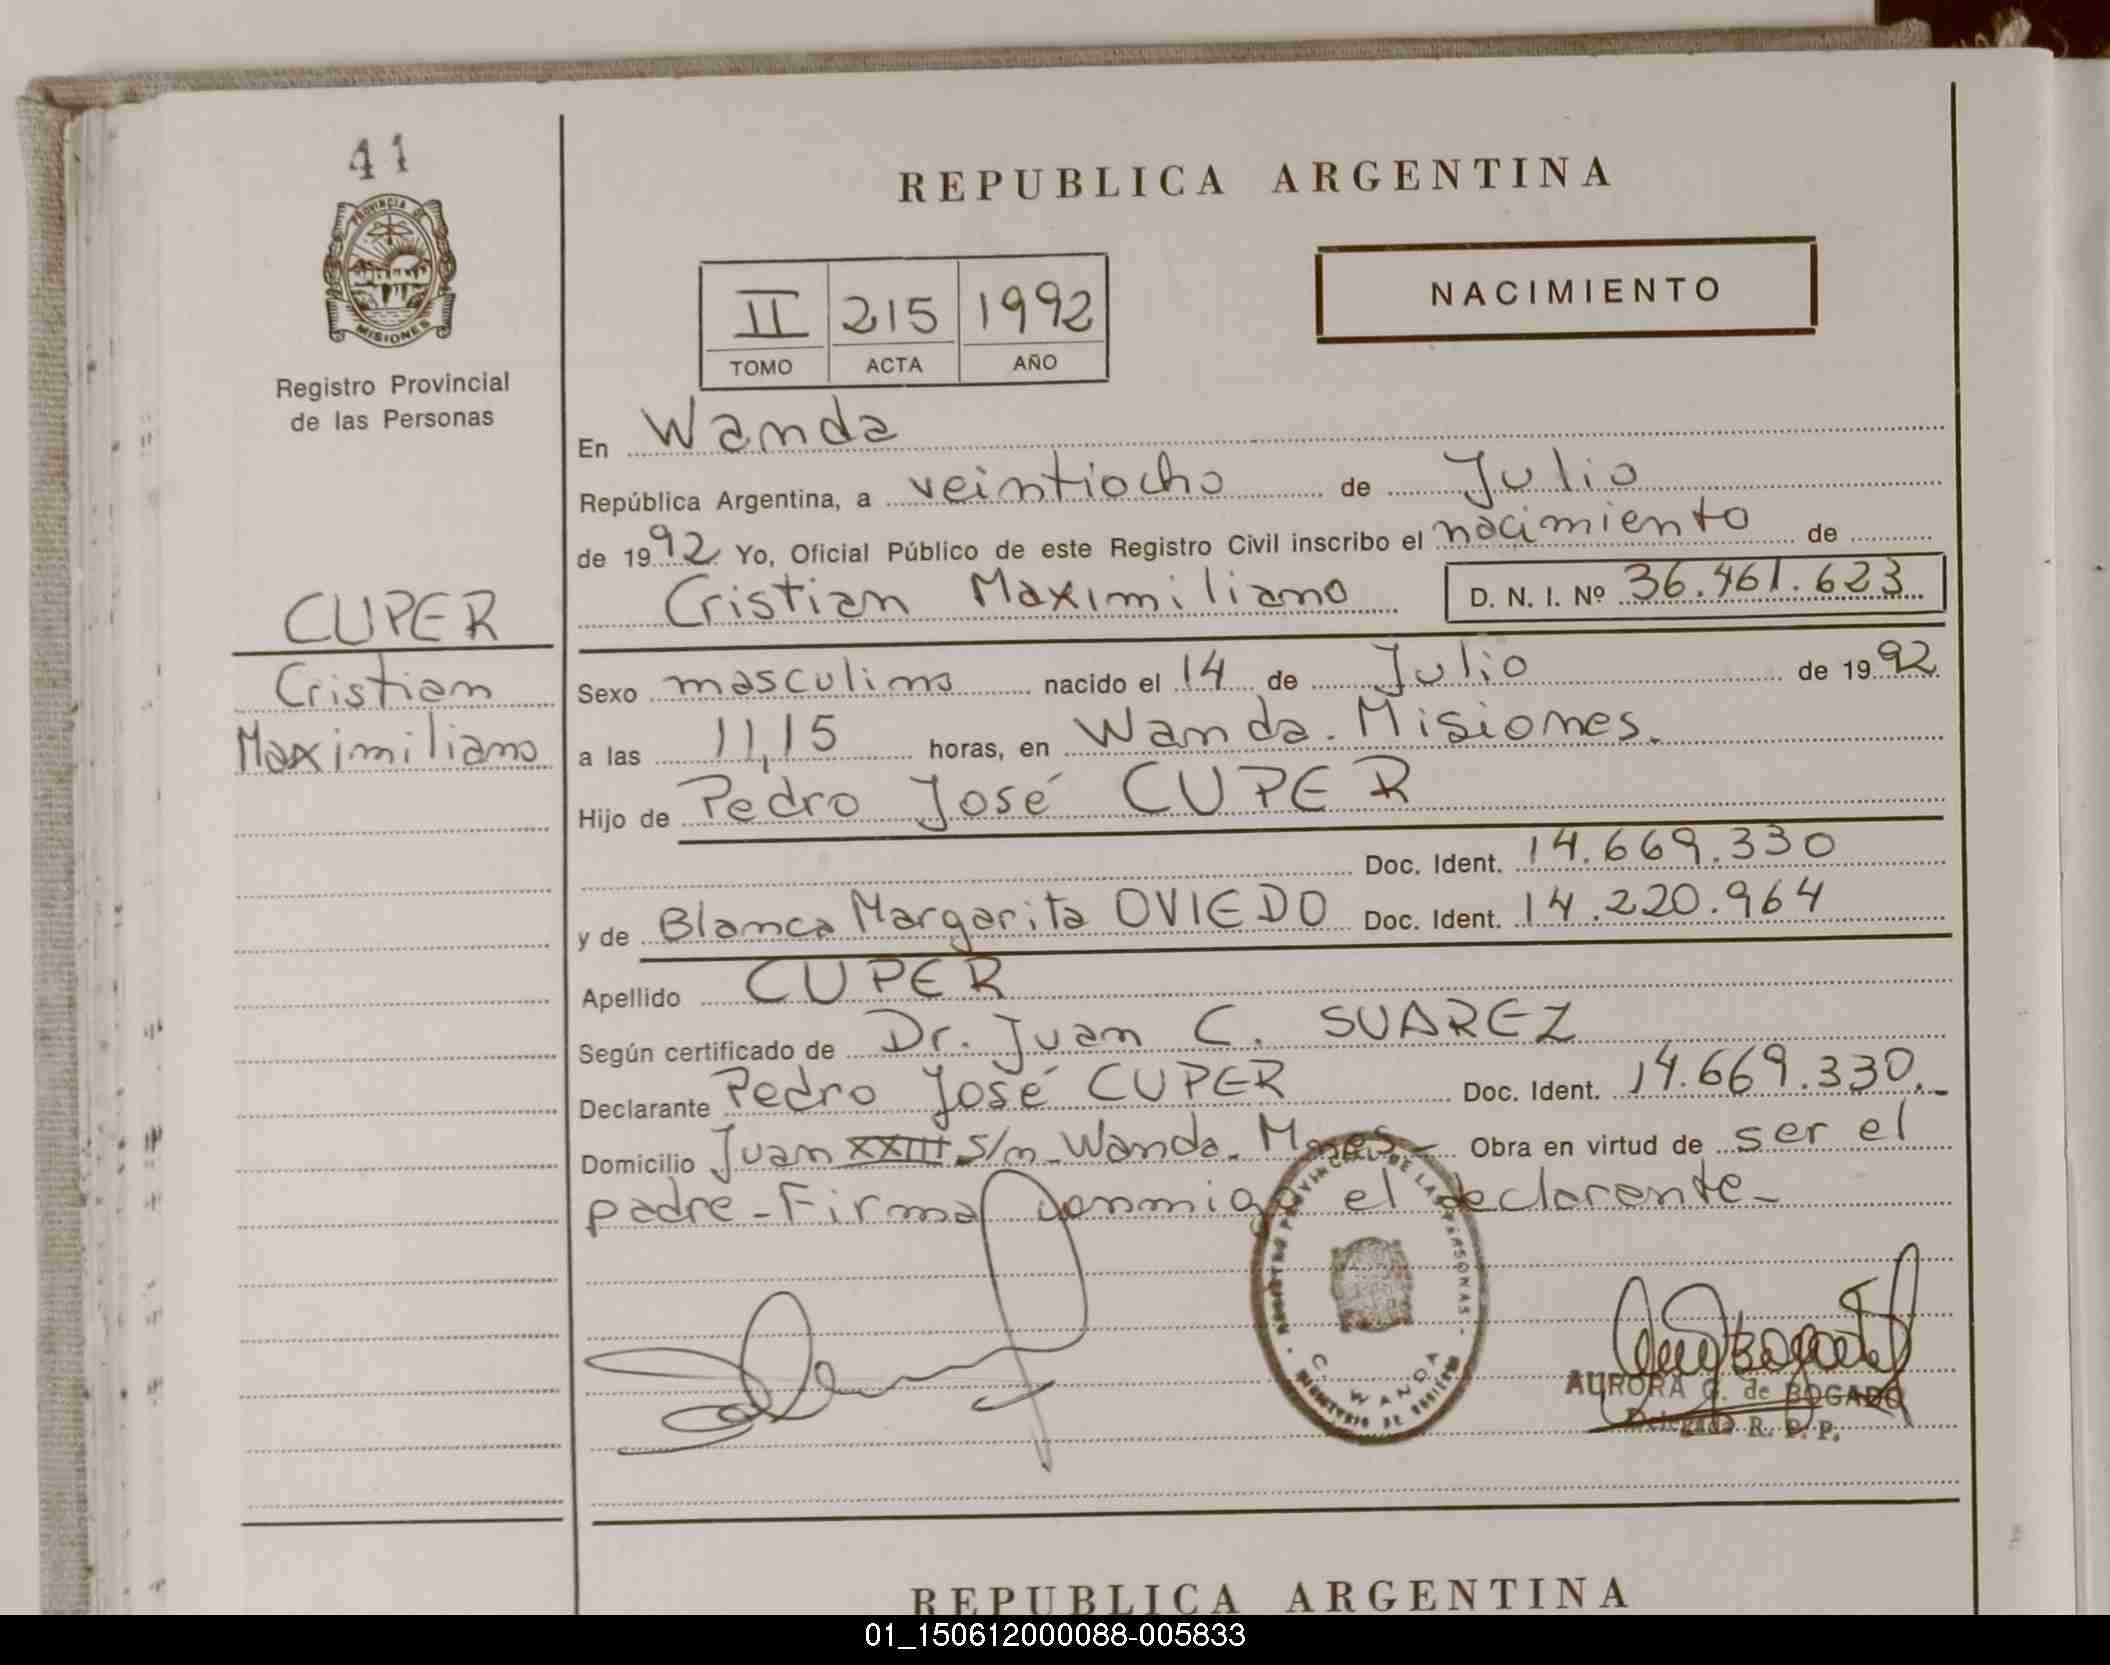 41
PROVINCIA DE
MISIONES
Registro Provincial
de las Personas
CUPER
Cristian
Maximiliano
REPUBLICA ARGENTINA
II 215 1992
TOMO ACTA AÑO
NACIMIENTO
En Wanda
República Argentina, a veintiocho de Julio
de 1992 Yo, Oficial Público de este Registro Civil inscribo el nacimiento de
Cristian Maximiliano D. N. I. Nº 36.461.623
Sexo masculino nacido el 14 de Julio de 1992
a las 11,15 horas, en Wanda. Misiones.
Hijo de Pedro José CUPER
Doc. Ident. 14.669.330
y de Blanca Margarita OVIEDO Doc. Ident. 14.220.964
Apellido CUPER
Según certificado de Dr. Juan C. SUAREZ
Declarante Pedro José CUPER Doc. Ident. 14.669.330.-
Domicilio Juan XXIII S/n - Wanda - Mnes - Obra en virtud de ser el
padre - Firma conmigo el declarante -
REGISTRO PROVINCIAL DE LAS PERSONAS
C. WANDA
AURORA G. de BOGADO
Delegada R. P. P.
REPUBLICA ARGENTINA
01_150612000088-005833